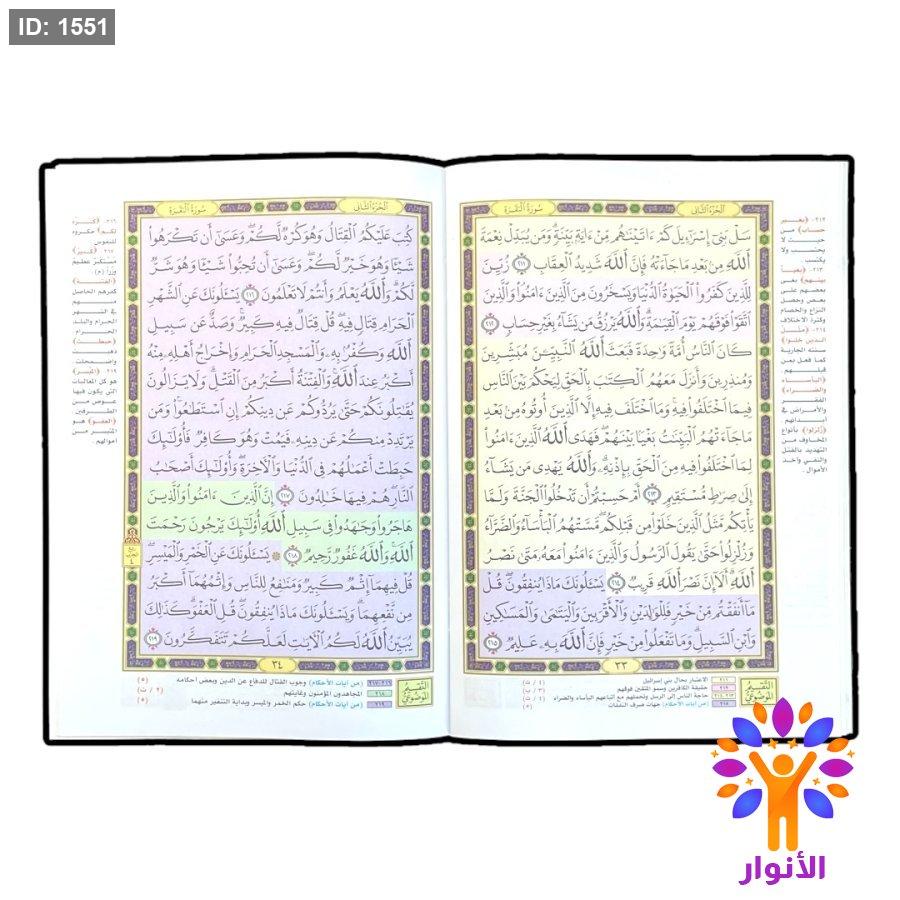 ID: 1551
الجزء الثاني
سورة البقرة
سَلْ بَنِىٓ إِسْرَٰٓءِيلَ كَمْ ءَاتَيْنَٰهُم مِّنْ ءَايَةٍۭ بَيِّنَةٍۢ ۗ وَمَن يُبَدِّلْ نِعْمَةَ
ٱللَّهِ مِنۢ بَعْدِ مَا جَآءَتْهُ فَإِنَّ ٱللَّهَ شَدِيدُ ٱلْعِقَابِ ٢١١ زُيِّنَ
لِلَّذِينَ كَفَرُوا۟ ٱلْحَيَوٰةُ ٱلدُّنْيَا وَيَسْخَرُونَ مِنَ ٱلَّذِينَ ءَامَنُوا۟ ۘ وَٱلَّذِينَ
ٱتَّقَوْا۟ فَوْقَهُمْ يَوْمَ ٱلْقِيَٰمَةِ ۗ وَٱللَّهُ يَرْزُقُ مَن يَشَآءُ بِغَيْرِ حِسَابٍۢ ٢١٢
كَانَ ٱلنَّاسُ أُمَّةً وَٰحِدَةً فَبَعَثَ ٱللَّهُ ٱلنَّبِيِّـۧنَ مُبَشِّرِينَ
وَمُنذِرِينَ وَأَنزَلَ مَعَهُمُ ٱلْكِتَٰبَ بِٱلْحَقِّ لِيَحْكُمَ بَيْنَ ٱلنَّاسِ
فِيمَا ٱخْتَلَفُوا۟ فِيهِ ۚ وَمَا ٱخْتَلَفَ فِيهِ إِلَّا ٱلَّذِينَ أُوتُوهُ مِنۢ بَعْدِ
مَا جَآءَتْهُمُ ٱلْبَيِّنَٰتُ بَغْيًۢا بَيْنَهُمْ ۖ فَهَدَى ٱللَّهُ ٱلَّذِينَ ءَامَنُوا۟
لِمَا ٱخْتَلَفُوا۟ فِيهِ مِنَ ٱلْحَقِّ بِإِذْنِهِۦ ۗ وَٱللَّهُ يَهْدِى مَن يَشَآءُ
إِلَىٰ صِرَٰطٍۢ مُّسْتَقِيمٍ ٢١٣ أَمْ حَسِبْتُمْ أَن تَدْخُلُوا۟ ٱلْجَنَّةَ وَلَمَّا
يَأْتِكُم مَّثَلُ ٱلَّذِينَ خَلَوْا۟ مِن قَبْلِكُم ۖ مَّسَّتْهُمُ ٱلْبَأْسَآءُ وَٱلضَّرَّآءُ
وَزُلْزِلُوا۟ حَتَّىٰ يَقُولَ ٱلرَّسُولُ وَٱلَّذِينَ ءَامَنُوا۟ مَعَهُۥ مَتَىٰ نَصْرُ
ٱللَّهِ ۗ أَلَآ إِنَّ نَصْرَ ٱللَّهِ قَرِيبٌ ٢١٤ يَسْـَٔلُونَكَ مَاذَا يُنفِقُونَ ۖ قُلْ
مَآ أَنفَقْتُم مِّنْ خَيْرٍۢ فَلِلْوَٰلِدَيْنِ وَٱلْأَقْرَبِينَ وَٱلْيَتَٰمَىٰ وَٱلْمَسَٰكِينِ
وَٱبْنِ ٱلسَّبِيلِ ۗ وَمَا تَفْعَلُوا۟ مِنْ خَيْرٍۢ فَإِنَّ ٱللَّهَ بِهِۦ عَلِيمٌ ٢١٥
٣٣
٢١٢- (بغير
حساب) من
حيث لا
يحتسب ولا
يكتسب.
٢١٣- (بغيا
بينهم) بغى
بعضهم على
بعض وحصل
النزاع والخصام
وكثرة الاختلاف
٢١٤- (مثل
الذين خلوا)
سنته الجارية
كما فعل بمن
قبلهم.
(البأساء
والضراء)
الفقر
والأمراض في
أبدانهم
(زلزلوا) بأنواع
المخاوف من
التهديد بالقتل
والنفي وأخذ
الأموال.
التفسير الموضوعي
٢١١ الاعتبار بحال بني إسرائيل (٤ / ت)
٢١٢ حقيقة الكافرين وسمو المتقين فوقهم (٣ / ب)
٢١٣، ٢١٤ حاجة الناس إلى الرسل وتحملهم مع أتباعهم البأساء والضراء (٤ / ت)
٢١٥ (من آيات الأحكام) جهات صرف النفقات (٥)
الجزء الثاني
سورة البقرة
كُتِبَ عَلَيْكُمُ ٱلْقِتَالُ وَهُوَ كُرْهٌۭ لَّكُمْ ۖ وَعَسَىٰٓ أَن تَكْرَهُوا۟
شَيْـًۭٔا وَهُوَ خَيْرٌۭ لَّكُمْ ۖ وَعَسَىٰٓ أَن تُحِبُّوا۟ شَيْـًۭٔا وَهُوَ شَرٌّۭ
لَّكُمْ ۗ وَٱللَّهُ يَعْلَمُ وَأَنتُمْ لَا تَعْلَمُونَ ٢١٦ يَسْـَٔلُونَكَ عَنِ ٱلشَّهْرِ
ٱلْحَرَامِ قِتَالٍۢ فِيهِ ۖ قُلْ قِتَالٌۭ فِيهِ كَبِيرٌۭ ۖ وَصَدٌّ عَن سَبِيلِ
ٱللَّهِ وَكُفْرٌۢ بِهِۦ وَٱلْمَسْجِدِ ٱلْحَرَامِ وَإِخْرَاجُ أَهْلِهِۦ مِنْهُ
أَكْبَرُ عِندَ ٱللَّهِ ۚ وَٱلْفِتْنَةُ أَكْبَرُ مِنَ ٱلْقَتْلِ ۗ وَلَا يَزَالُونَ
يُقَٰتِلُونَكُمْ حَتَّىٰ يَرُدُّوكُمْ عَن دِينِكُمْ إِنِ ٱسْتَطَٰعُوا۟ ۚ وَمَن
يَرْتَدِدْ مِنكُمْ عَن دِينِهِۦ فَيَمُتْ وَهُوَ كَافِرٌۭ فَأُو۟لَٰٓئِكَ
حَبِطَتْ أَعْمَٰلُهُمْ فِى ٱلدُّنْيَا وَٱلْـَٔاخِرَةِ ۖ وَأُو۟لَٰٓئِكَ أَصْحَٰبُ
ٱلنَّارِ ۖ هُمْ فِيهَا خَٰلِدُونَ ٢١٧ إِنَّ ٱلَّذِينَ ءَامَنُوا۟ وَٱلَّذِينَ
هَاجَرُوا۟ وَجَٰهَدُوا۟ فِى سَبِيلِ ٱللَّهِ أُو۟لَٰٓئِكَ يَرْجُونَ رَحْمَتَ
ٱللَّهِ ۚ وَٱللَّهُ غَفُورٌۭ رَّحِيمٌۭ ٢١٨ ۞ يَسْـَٔلُونَكَ عَنِ ٱلْخَمْرِ وَٱلْمَيْسِرِ ۖ
قُلْ فِيهِمَآ إِثْمٌۭ كَبِيرٌۭ وَمَنَٰفِعُ لِلنَّاسِ وَإِثْمُهُمَآ أَكْبَرُ
مِن نَّفْعِهِمَا ۗ وَيَسْـَٔلُونَكَ مَاذَا يُنفِقُونَ قُلِ ٱلْعَفْوَ ۗ كَذَٰلِكَ
يُبَيِّنُ ٱللَّهُ لَكُمُ ٱلْـَٔايَٰتِ لَعَلَّكُمْ تَتَفَكَّرُونَ ٢١٩
٣٤
٢١٦- (كره
لكم) مكروه
للنفوس
٢١٧ (كبير)
مستكبر عظيم
وزراً (م).
(الفتنة)
كفرهم الحاصل
منهم
في الشهر
الحرام والبلد
الحرام
(حبطت)
ذهبت
واضمحلت
٢١٩ (الميسر)
هو كل المغالبات
التي يكون فيها
عوض من
الطرفين.
(العفو) هو
المتيسر من
أموالهم.
التفسير الموضوعي
٢١٦، ٢١٧ (من آيات الأحكام) وجوب القتال للدفاع عن الدين وبعض أحكامه (٥)
٢١٨ المجاهدون المؤمنون وغايتهم (٢ / ت)
٢١٩ (من آيات الأحكام) حكم الخمر والميسر وبداية التنفير منهما (٥)
الأنوار